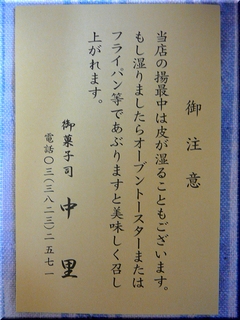 御注意
当店の揚最中は皮が湿ることもございます。
もし湿りましたらオーブントースターまたは
フライパン等であぶりますと美味しく召し
上がれます。
御菓子司 中里
電話〇三(三八二三)二五七一